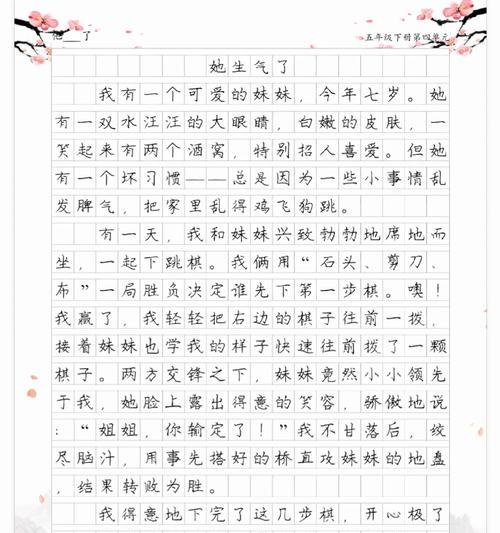 他___了
五年级下册第四单元
她生气了
我有一个可爱的妹妹，今年七岁。她
有一双水汪汪的大眼睛，白嫩的皮肤，一
笑起来有两个酒窝，特别招人喜爱。但她
有一个坏习惯——总是因为一些小事情乱
发脾气，把家里乱得鸡飞狗跳。
有一天，我和妹妹兴致勃勃地席地而
坐，一起下跳棋。我俩用“石头、剪刀、
布”一局胜负决定谁先下第一步棋。噢！
我赢了，我轻轻把右边的棋子往前一拨，
接着妹妹也学我的样子快速往前拨了一颗
棋子。两方交锋之下，妹妹竟然小小领先
于我，她脸上露出得意的笑容，骄傲地说
：“姐姐，你输定了！”我不甘落后，绞
尽脑汁，用事先搭好的桥直攻妹妹的地盘
，结果转败为胜。
我得意地下完了这几步棋，开心极了